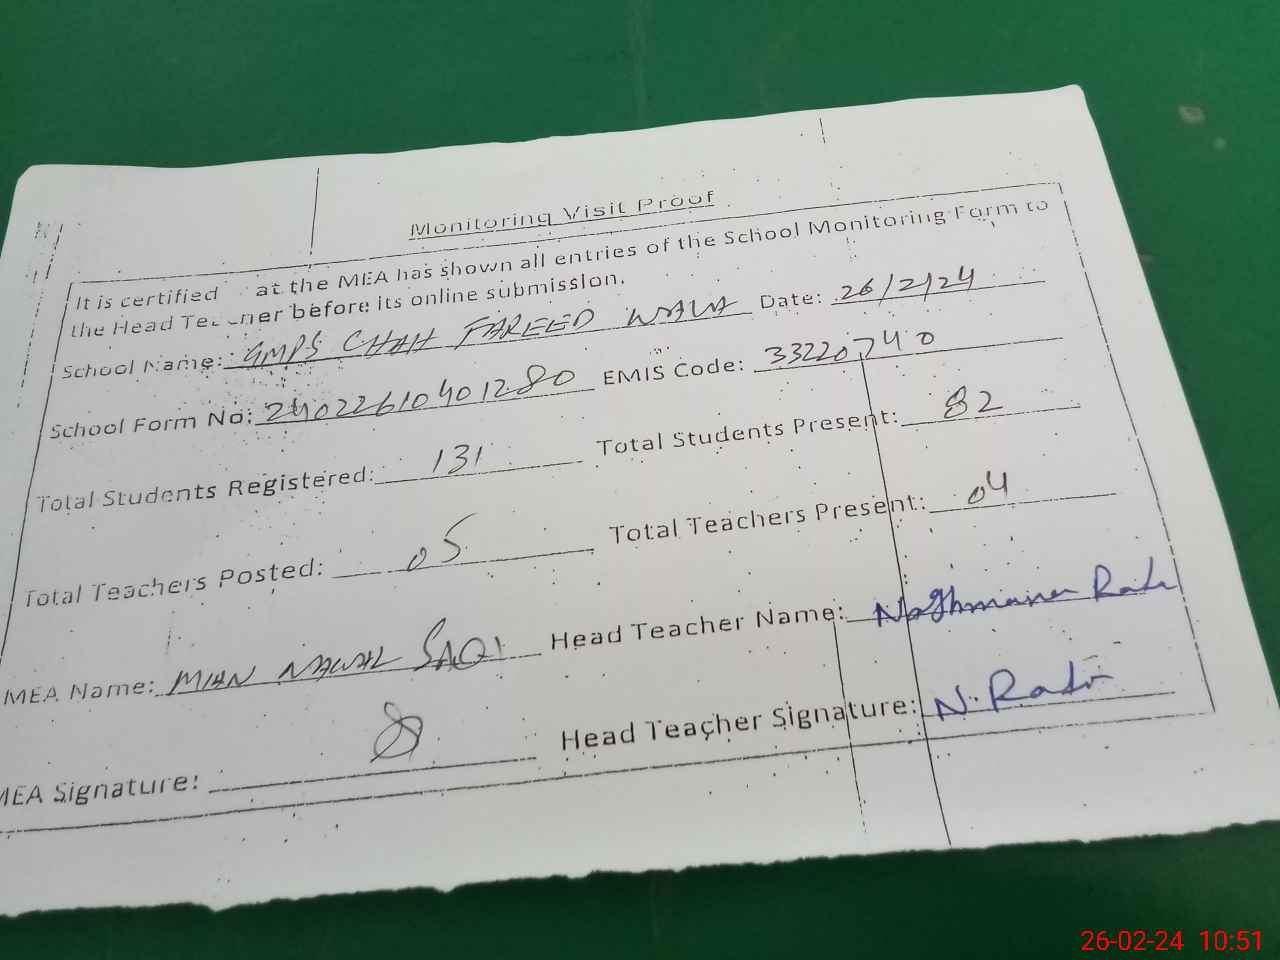 Monitoring Visit Proof
It is certified at the MEA has shown all entries of the School Monitoring Form to
the Head Teacher before its online submission.
School Name: GMPS CHAH FAREED WALA Date: 26/2/24
School Form No: 24022610401280 EMIS Code: 33220740
Total Students Registered: 131 Total Students Present: 82
Total Teachers Posted: 05 Total Teachers Present: 04
MEA Name: MIAN NAWAL SAQI Head Teacher Name: Naghmana
MEA Signature: Head Teacher Signature: N.
26-02-24 10:51